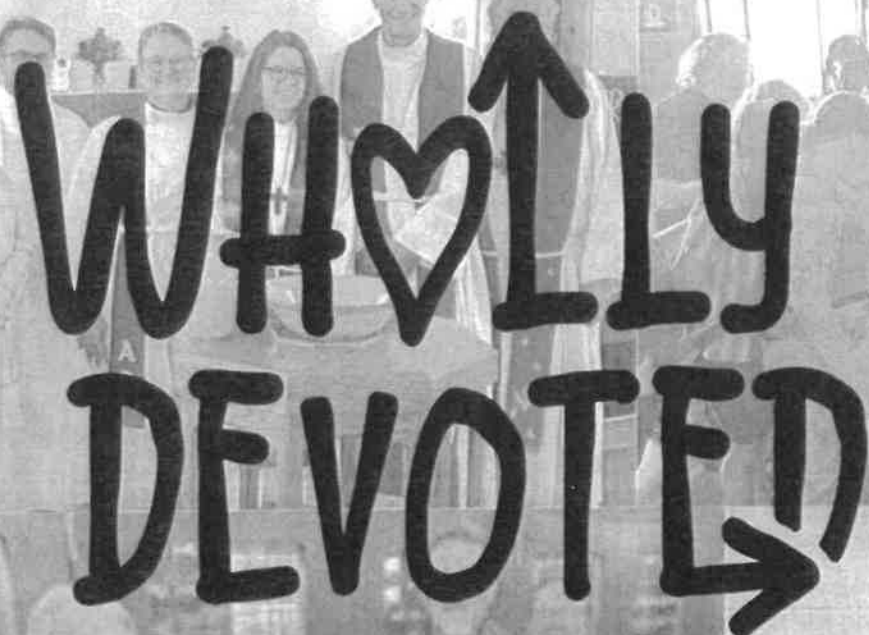 WHOLLY
DEVOTED
A